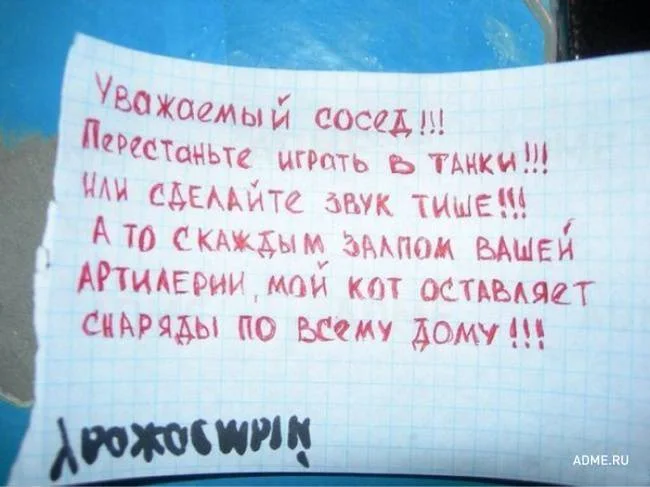 Уважаемый сосед!!!
Перестаньте играть в танки!!!
Или сделайте звук тише!!!
А то с каждым залпом вашей
артилерии, мой кот оставляет
снаряды по всему дому!!!
ADME.RU